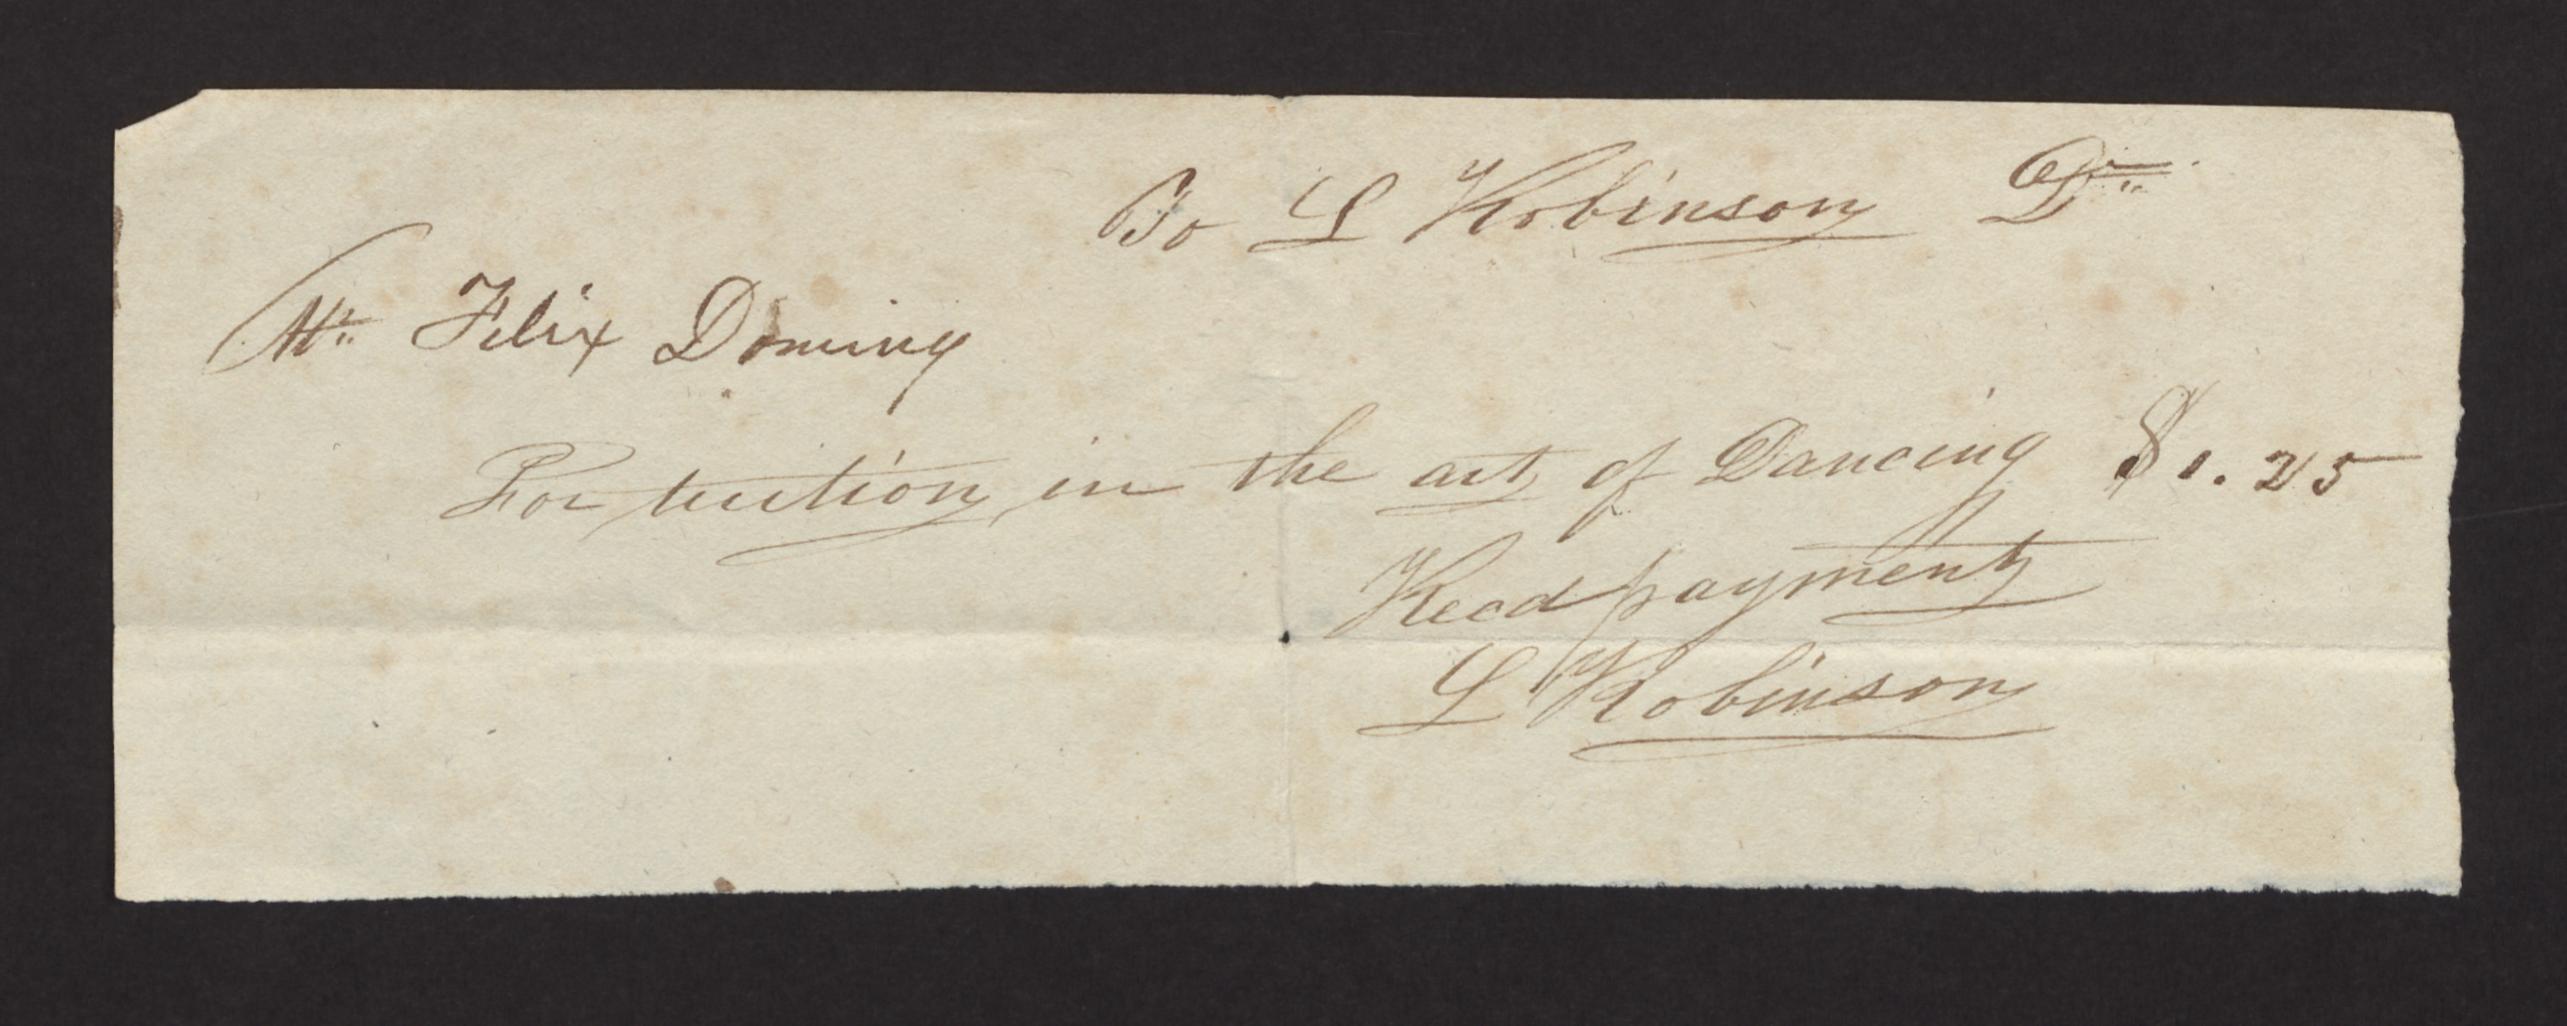 To L Robinson Dr
Mr Felix Dominy
For tuition in the art of Dancing $1.25
Recd payment
L Robinson